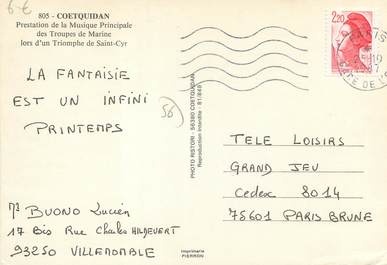 6-€
805 - COETQUIDAN
Prestation de la Musique Principale
des Troupes de Marine
lors d'un Triomphe de Saint-Cyr
LA FANTAISIE
EST UN INFINI
PRINTEMPS
56
Mr BUONO Lucien
17 Bis Rue Charles HILDEVERT
93250 VILLEMOMBLE
PHOTO RISTORI - 56380 COETQUIDAN
Reproduction Interdite - 81/848
Imprimerie
PIERRON
2,20
PARIS
GARE DE L'
TELE LOISIRS
GRAND JEU
Cedex 8014
75601 PARIS BRUNE